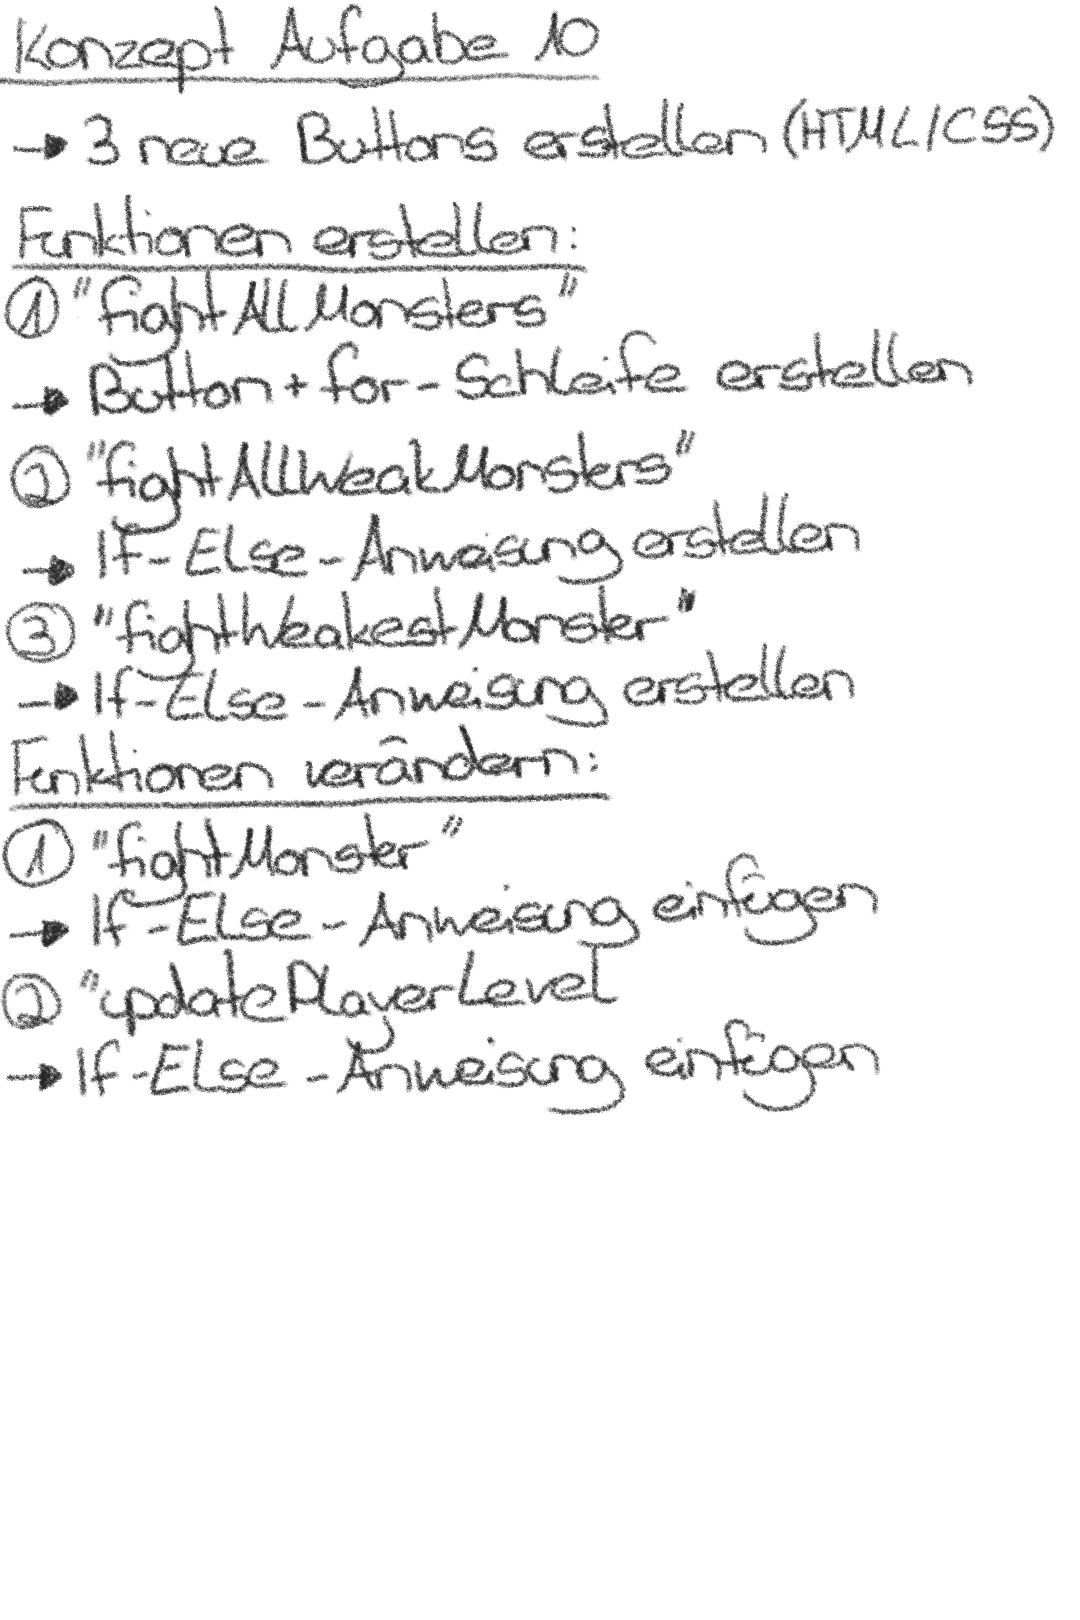 Konzept Aufgabe 10
→ 3 neue Buttons erstellen (HTML/CSS)
Funktionen erstellen:
① "fightAllMonsters"
→ Button + for-Schleife erstellen
② "fightAllWeakMonsters"
→ If-Else-Anweisung erstellen
③ "fightWeakestMonster"
→ If-Else-Anweisung erstellen
Funktionen verändern:
① "fightMonster"
→ If-Else-Anweisung einfügen
② "updatePlayerLevel
→ If-Else-Anweisung einfügen